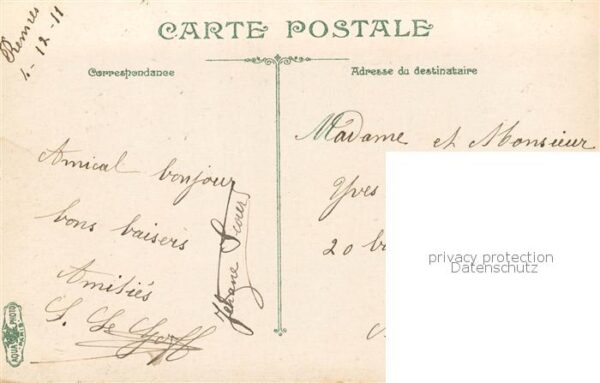 Rennes
4-12-11
CARTE POSTALE
Correspondance
Adresse du destinataire
Madame et Monsieur
Yves
20
Amical bonjour
bons baisers
Amitiés
S. Le Goff
Jehane
AQUA PHOTO
PARIS
privacy protection
Datenschutz